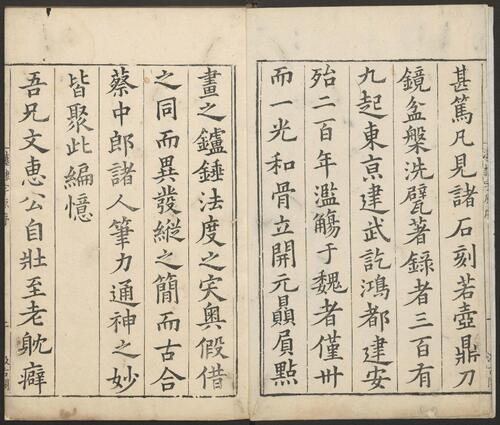 甚篤凡見諸石刻若壺鼎刀
鏡盆槃洗甓著錄者三百有
九起東京建武訖鴻都建安
殆二百年濫觴于魏者僅卅
而一光和骨立開元贔屓點
畫之鑪錘法度之突奧假借
之同而異發縱之簡而古合
蔡中郎諸人筆力通神之妙
皆聚此編憶
吾兄文惠公自壯至老耽癖